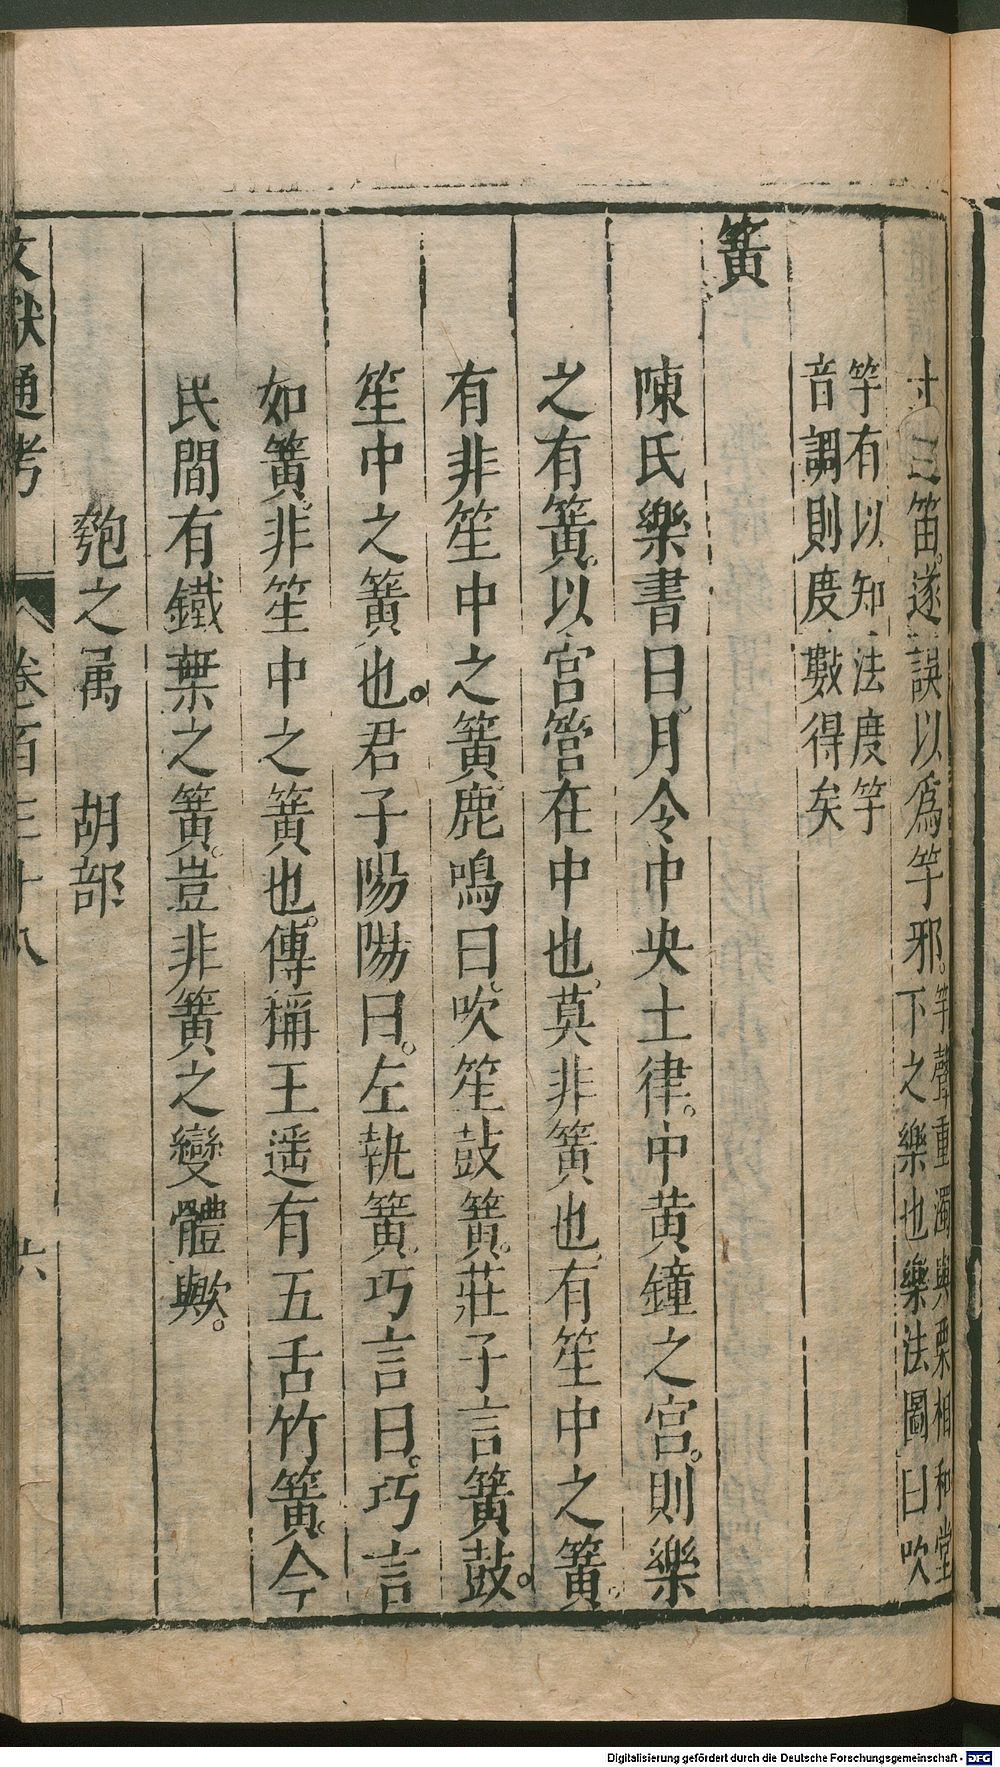 寸三笛。遂誤以爲竽邪。竽聲重濁與栗相和堂
下之樂也樂法圖曰吹
竽有以知法度竽
音調則度數得矣
簧
陳氏樂書曰。月令中央土律。中黄鐘之宮。則樂
之有簧。以宮管在中也。莫非簧也。有笙中之簧。
有非笙中之簧鹿鳴曰。吹笙鼓簧。莊子言簧鼓。
笙中之簧也。君子陽陽曰。左執簧。巧言曰。巧言
如簧。非笙中之簧也。傳稱王遥有五舌竹簧。今
民間有鐵葉之簧。豈非簧之變體歟。
匏之属 胡部
文獻通考 卷百三十八 六
Digitalisierung gefördert durch die Deutsche Forschungsgemeinschaft - DFG